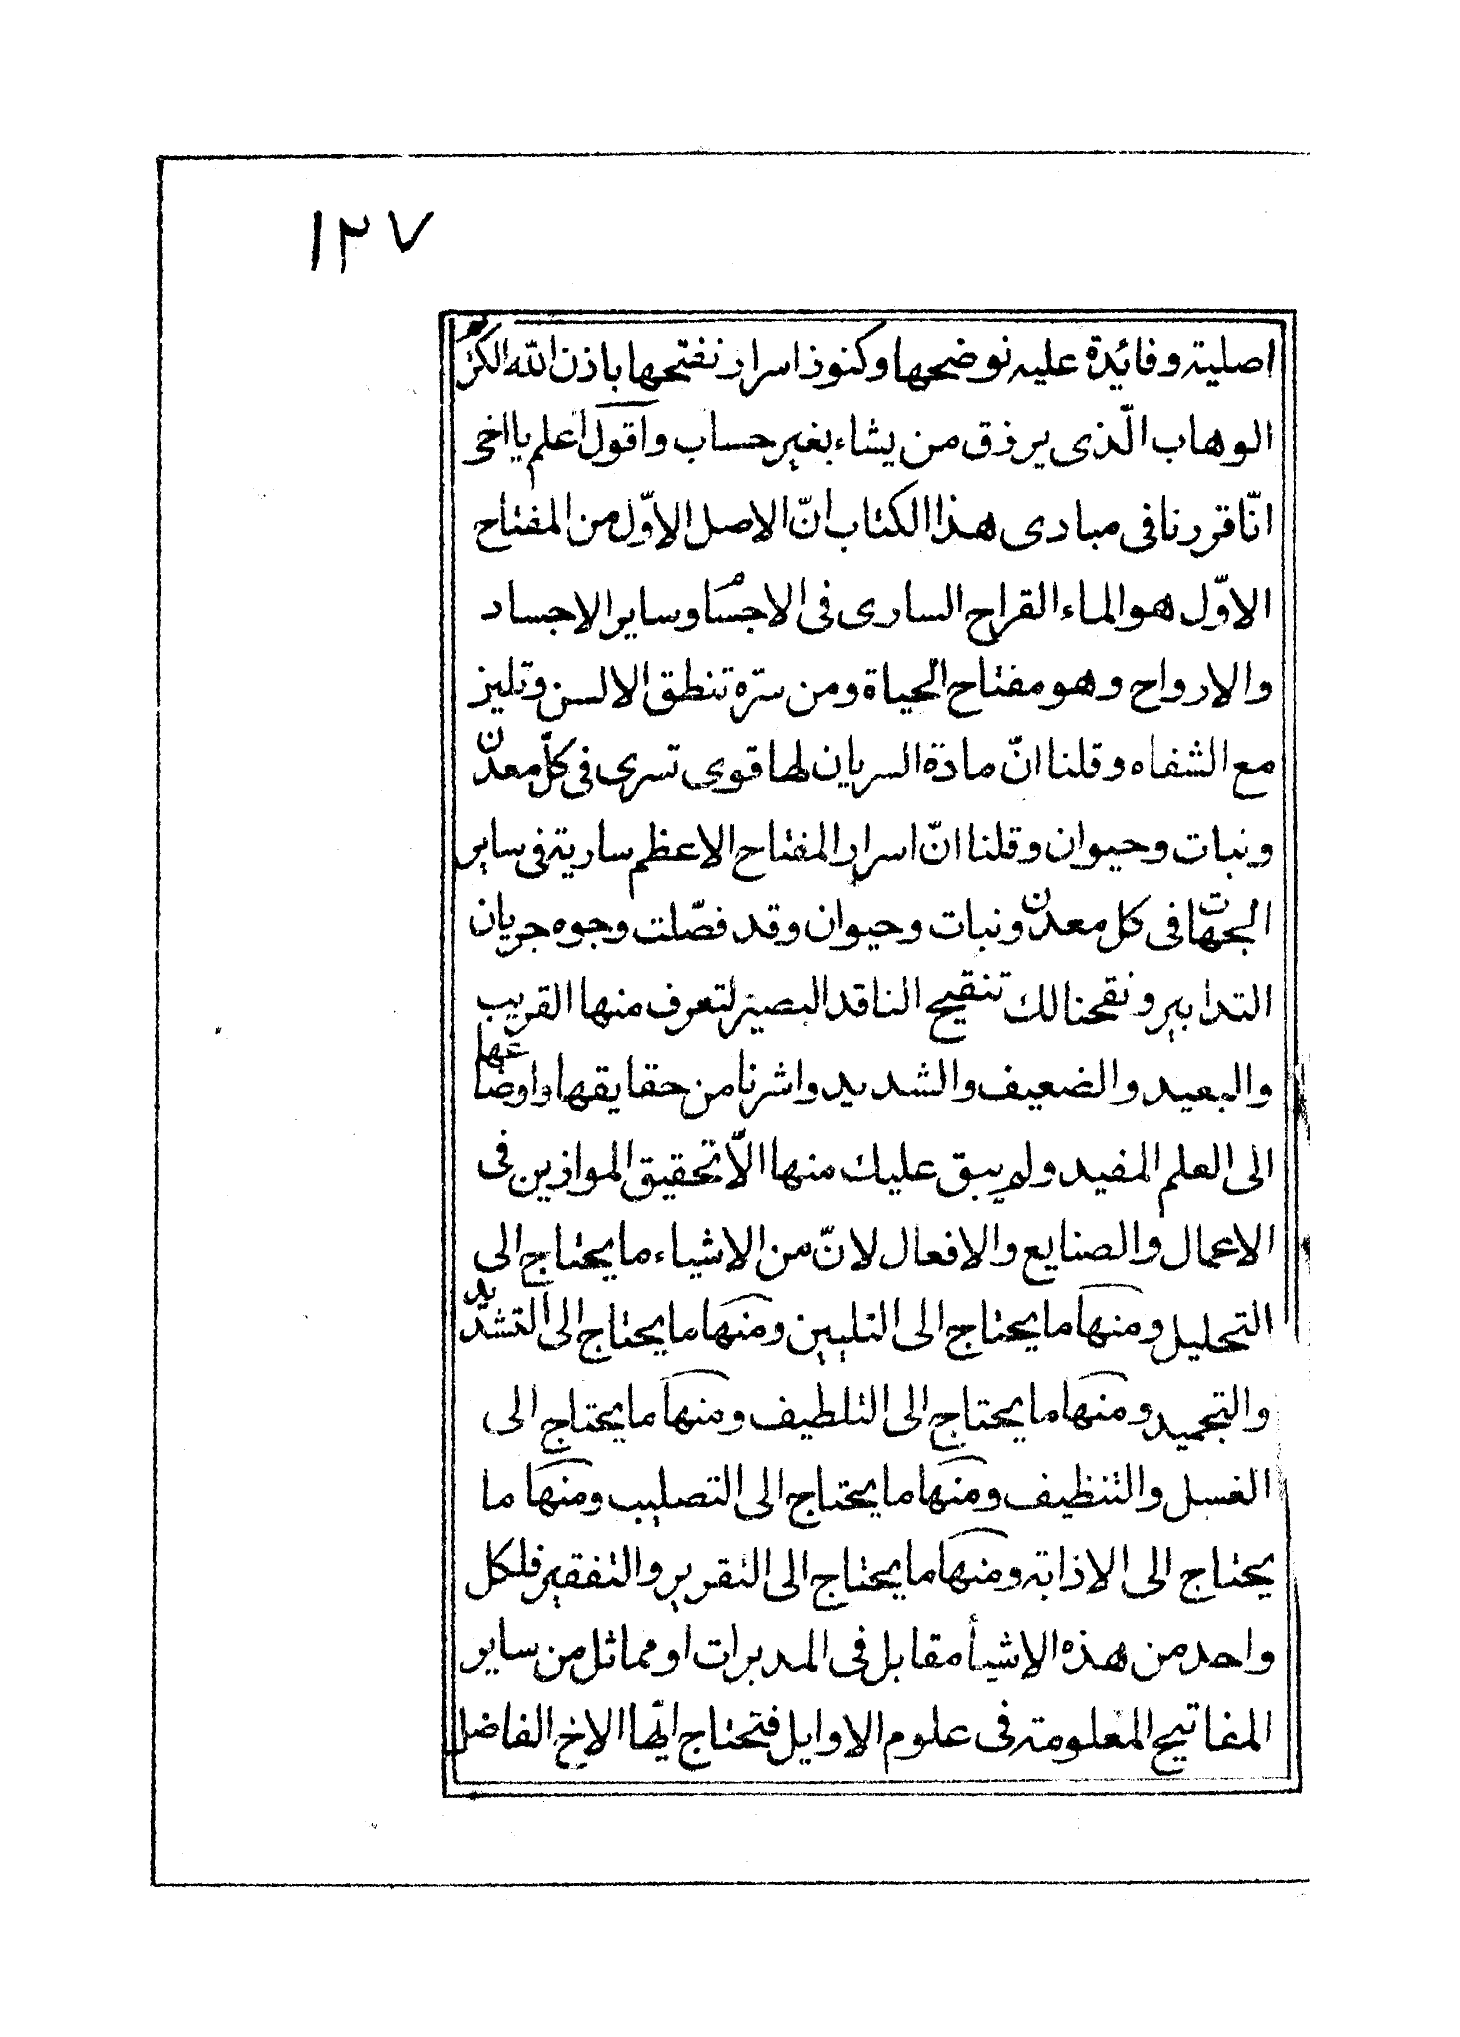 ١٢٧
اصلية وفائدة عليه نوضحها وكنوذ اسرار نفتحها باذن الله الكريم
الوهاب الّذى يرزق من يشاء بغير حساب واقول اعلم يا اخى
انّا قررنا فى مبادى هذا الكتاب انّ الاصل الاوّل من المفتاح
الاوّل هو الماء القراح السارى فى الاجسام وساير الاجساد
والارواح وهو مفتاح الحياة ومن سرّه تنطق الالسن وتليز
مع الشفاه وقلنا انّ مادة السريان لها قوى تسرى فى كلّ معدن
ونبات وحيوان وقلنا انّ اسرار المفتاح الاعظم سارية فى ساير
الجهات فى كل معدن ونبات وحيوان وقد فصّلت وجوه جريان
التدابير ونقحنا لك تنقيح الناقد البصير لتعرف منها القريب
والبعيد والضعيف والشديد واشرنا من حقايقها واوضاعها
الى العلم المفيد ولم يبق عليك منها الّا تحقيق الموازين فى
الاعمال والصنايع والافعال لانّ من الاشياء ما يحتاج الى
التحليل ومنها ما يحتاج الى التليين ومنها ما يحتاج الى التشديد
والتجميد ومنها ما يحتاج الى التلطيف ومنها ما يحتاج الى
الغسل والتنظيف ومنها ما يحتاج الى التصليب ومنها ما
يحتاج الى الاذابة ومنها ما يحتاج الى التقرير والتفقير فلكل
واحد من هذه الاشيأ مقابل فى المدبرات او مماثل من ساير
المفاتيح المعلومة فى علوم الاوايل فتحتاج ايّها الاخ الفاضل